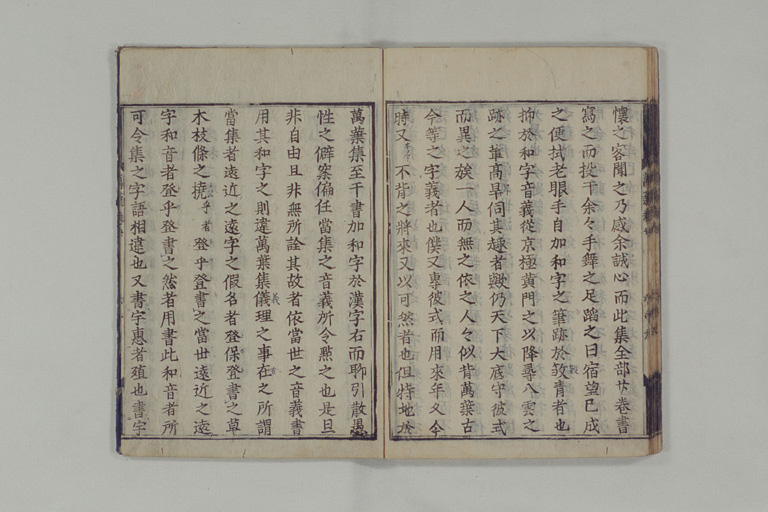 懐之客聞之乃感余誠心而此集全部廿巻書
寫之而投干余々手舞之足蹈之曰宿望已成
之便拭老眼手自加和字之筆跡於殺青者也
抑於和字音義從京極黄門之以降尋八雲之
跡之輩高卑伺其趣者歟仍天下大底守彼式
而異之族一人而無之依之人々似背萬葉古
今等之字義者也僕又專彼式而用來年久今
時又不背之將來又以可然者也但特地於
萬葉集至干書加和字於漢字右而聊引散愚
性之僻案偏任當集之音義所令點之也是且
非自由且非無所詮其故者依當世之音義書
用其和字之則違萬葉集儀理之事在之所謂
當集者遠近之遠字之假名者登保登書之草
木枝條之撓乎者登乎登書之當世遠近之遠
字和音者登乎登書之然者用書此和音者所
可令集之字語相違也又書字惠者殖也書字